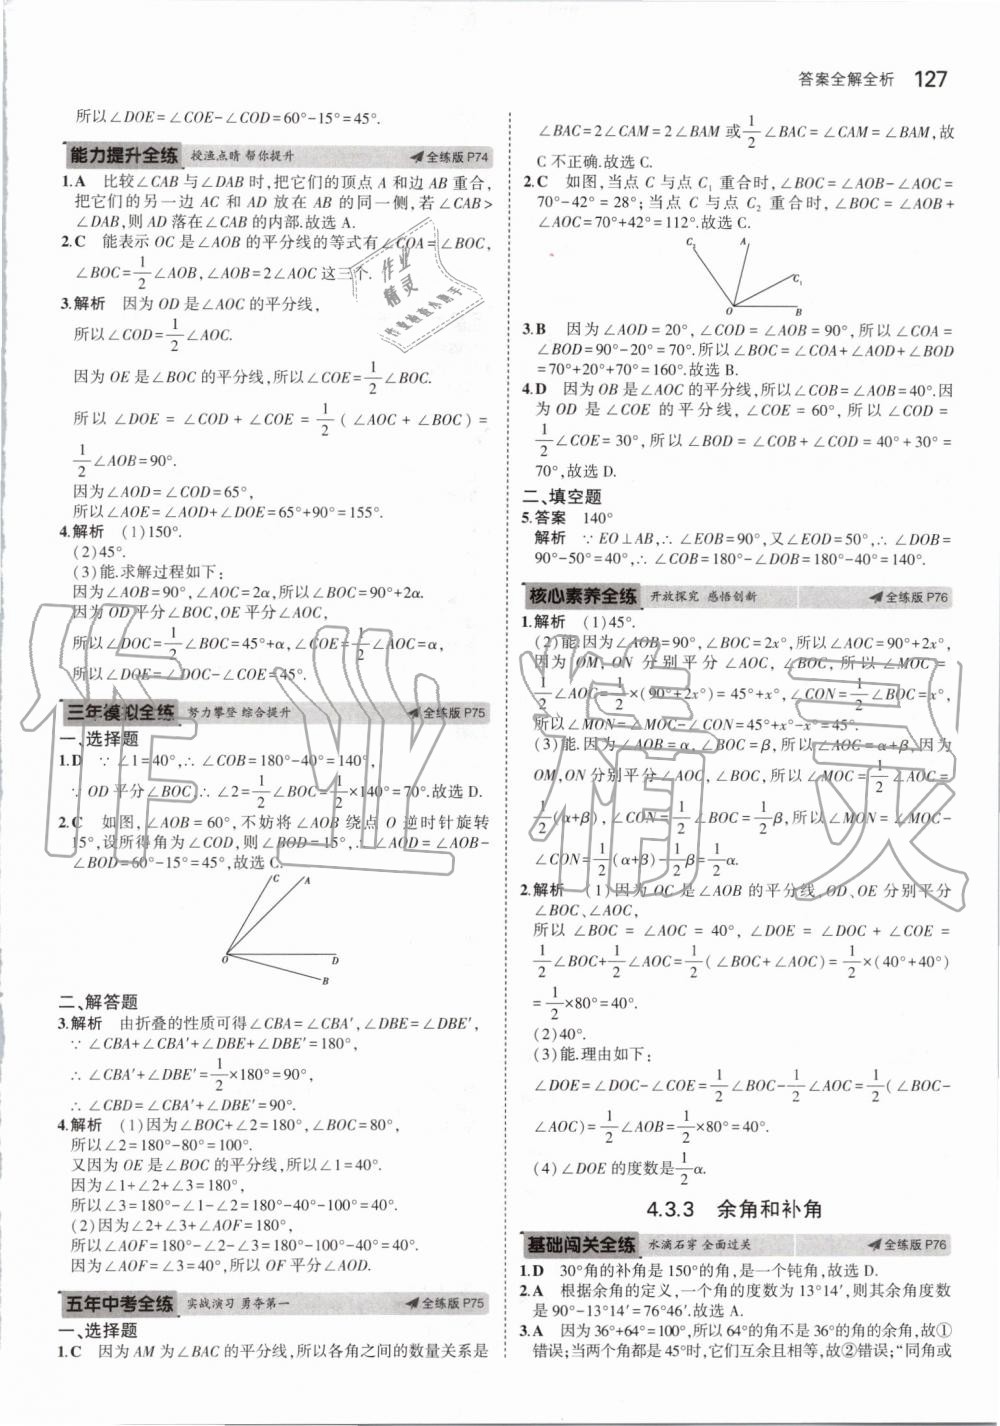 答案全解全析 127
所以∠DOE=∠COE-∠COD=60°-15°=45°.
能力提升全练 授渔点睛 帮你提升 全练版 P74
1.A 比较∠CAB与∠DAB时,把它们的顶点A和边AB重合,
把它们的另一边AC和AD放在AB的同一侧,若∠CAB>
∠DAB,则AD落在∠CAB的内部.故选A.
2.C 能表示OC是∠AOB的平分线的等式有∠COA=∠BOC,
∠BOC=1/2∠AOB,∠AOB=2∠AOC这三个.
3.解析 因为OD是∠AOC的平分线,
所以∠COD=1/2∠AOC.
因为OE是∠BOC的平分线,所以∠COE=1/2∠BOC.
所以∠DOE=∠COD+∠COE=1/2(∠AOC+∠BOC)=
1/2∠AOB=90°.
因为∠AOD=∠COD=65°,
所以∠AOE=∠AOD+∠DOE=65°+90°=155°.
4.解析 (1)150°.
(2)45°.
(3)能.求解过程如下:
因为∠AOB=90°,∠AOC=2α,所以∠BOC=90°+2α.
因为OD平分∠BOC,OE平分∠AOC,
所以∠DOC=1/2∠BOC=45°+α,∠COE=1/2∠AOC=α,
所以∠DOE=∠DOC-∠COE=45°.
三年模拟全练 努力攀登 综合提升 全练版 P75
一、选择题
1.D ∵∠1=40°,∴∠COB=180°-40°=140°,
∵OD平分∠BOC,∴∠2=1/2∠BOC=1/2×140°=70°.故选D.
2.C 如图,∠AOB=60°,不妨将∠AOB绕点O逆时针旋转
15°,设所得角为∠COD,则∠BOD=15°,∴∠AOD=∠AOB-
∠BOD=60°-15°=45°,故选C.
C A
O D
B
二、解答题
3.解析 由折叠的性质可得∠CBA=∠CBA′,∠DBE=∠DBE′,
∵∠CBA+∠CBA′+∠DBE+∠DBE′=180°,
∴∠CBA′+∠DBE′=1/2×180°=90°,
∴∠CBD=∠CBA′+∠DBE′=90°.
4.解析 (1)因为∠BOC+∠2=180°,∠BOC=80°,
所以∠2=180°-80°=100°.
又因为OE是∠BOC的平分线,所以∠1=40°.
因为∠1+∠2+∠3=180°,
所以∠3=180°-∠1-∠2=180°-40°-100°=40°.
(2)因为∠2+∠3+∠AOF=180°,
所以∠AOF=180°-∠2-∠3=180°-100°-40°=40°,
所以∠AOF=∠3=40°,所以OF平分∠AOD.
五年中考全练 实战演习 勇夺第一 全练版 P75
一、选择题
1.C 因为AM为∠BAC的平分线,所以各角之间的数量关系是
∠BAC=2∠CAM=2∠BAM或1/2∠BAC=∠CAM=∠BAM,故
C不正确.故选C.
2.C 如图,当点C与点C₁重合时,∠BOC=∠AOB-∠AOC=
70°-42°=28°;当点C与点C₂重合时,∠BOC=∠AOB+
∠AOC=70°+42°=112°.故选C.
C₂ A
C₁
O B
3.B 因为∠AOD=20°,∠COD=∠AOB=90°,所以∠COA=
∠BOD=90°-20°=70°.所以∠BOC=∠COA+∠AOD+∠BOD
=70°+20°+70°=160°.故选B.
4.D 因为OB是∠AOC的平分线,所以∠COB=∠AOB=40°.因
为OD是∠COE的平分线,∠COE=60°,所以∠COD=
1/2∠COE=30°,所以∠BOD=∠COB+∠COD=40°+30°=
70°,故选D.
二、填空题
5.答案 140°
解析 ∵EO⊥AB,∴∠EOB=90°,又∠EOD=50°,∴∠DOB=
90°-50°=40°,∴∠COB=180°-∠DOB=180°-40°=140°.
核心素养全练 开放探究 感悟创新 全练版 P76
1.解析 (1)45°.
(2)能.因为∠AOB=90°,∠BOC=2x°,所以∠AOC=90°+2x°,
因为OM,ON分别平分∠AOC,∠BOC,所以∠MOC=
1/2∠AOC=1/2×(90°+2x°)=45°+x°,∠CON=1/2∠BOC=x°,
所以∠MON=∠MOC-∠CON=45°+x°-x°=45°.
(3)能.因为∠AOB=α,∠BOC=β,所以∠AOC=α+β,因为
OM,ON分别平分∠AOC,∠BOC,所以∠MOC=1/2∠AOC=
1/2(α+β),∠CON=1/2∠BOC=1/2β,所以∠MON=∠MOC-
∠CON=1/2(α+β)-1/2β=1/2α.
2.解析 (1)因为OC是∠AOB的平分线,OD、OE分别平分
∠BOC、∠AOC,
所以∠BOC=∠AOC=40°,∠DOE=∠DOC+∠COE=
1/2∠BOC+1/2∠AOC=1/2(∠BOC+∠AOC)=1/2×(40°+40°)
=1/2×80°=40°.
(2)40°.
(3)能.理由如下:
∠DOE=∠DOC-∠COE=1/2∠BOC-1/2∠AOC=1/2(∠BOC-
∠AOC)=1/2∠AOB=1/2×80°=40°.
(4)∠DOE的度数是1/2α.
4.3.3 余角和补角
基础闯关全练 水滴石穿 全面过关 全练版 P76
1.D 30°角的补角是150°的角,是一个钝角,故选D.
2.A 根据余角的定义,一个角的度数为13°14′,则其余角度数
是90°-13°14′=76°46′.故选A.
3.A 因为36°+64°=100°,所以64°的角不是36°的角的余角,故①
错误;当两个角都是45°时,它们互余且相等,故②错误;“同角或
作业精灵
作业
精灵
作业检查小助手